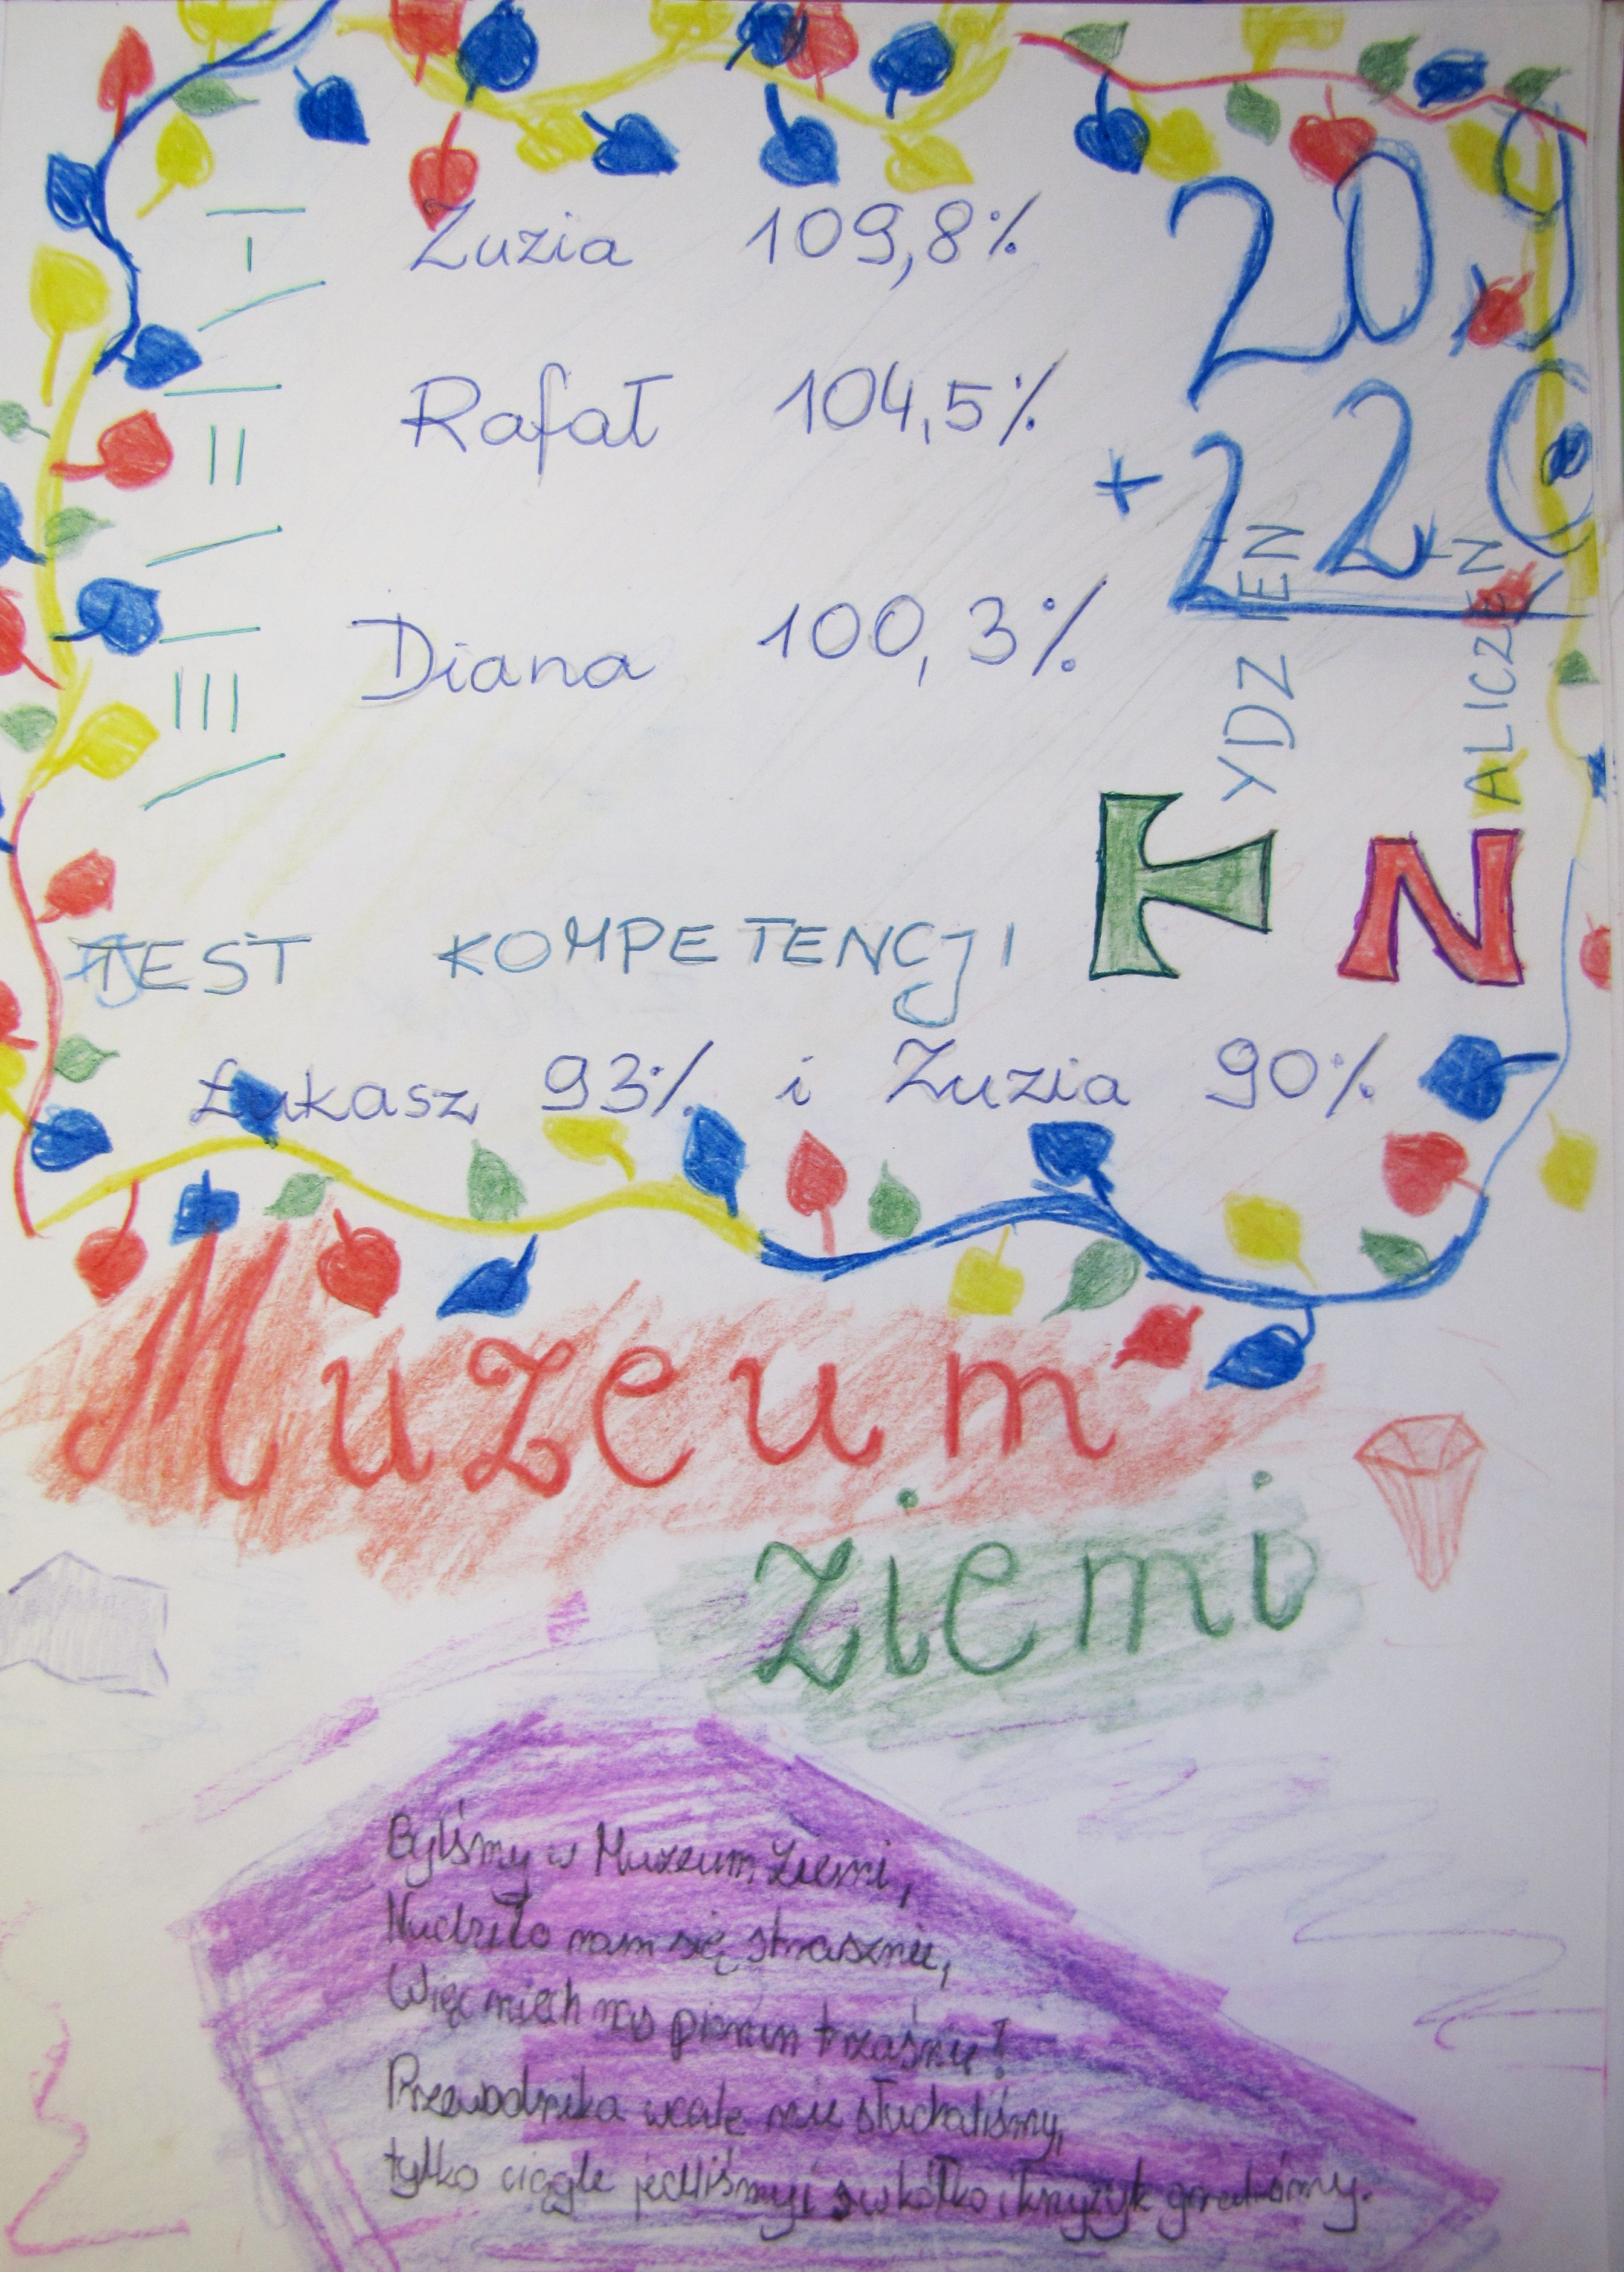 I Zuzia 109,8%
209
II Rafał 104,5%
+ 220
III Diana 100,3%
TYDZIEŃ
NALICZEŃ
TEST KOMPETENCJI
Łukasz 93% i Zuzia 90%
Muzeum
ziemi
Byliśmy w Muzeum Ziemi,
Nudziło nam się strasznie,
Więc niech nas piorun trzaśnie!
Przewodnika wcale nie słuchaliśmy,
tylko ciągle jedliśmy i w kółko i krzyżyk graliśmy.